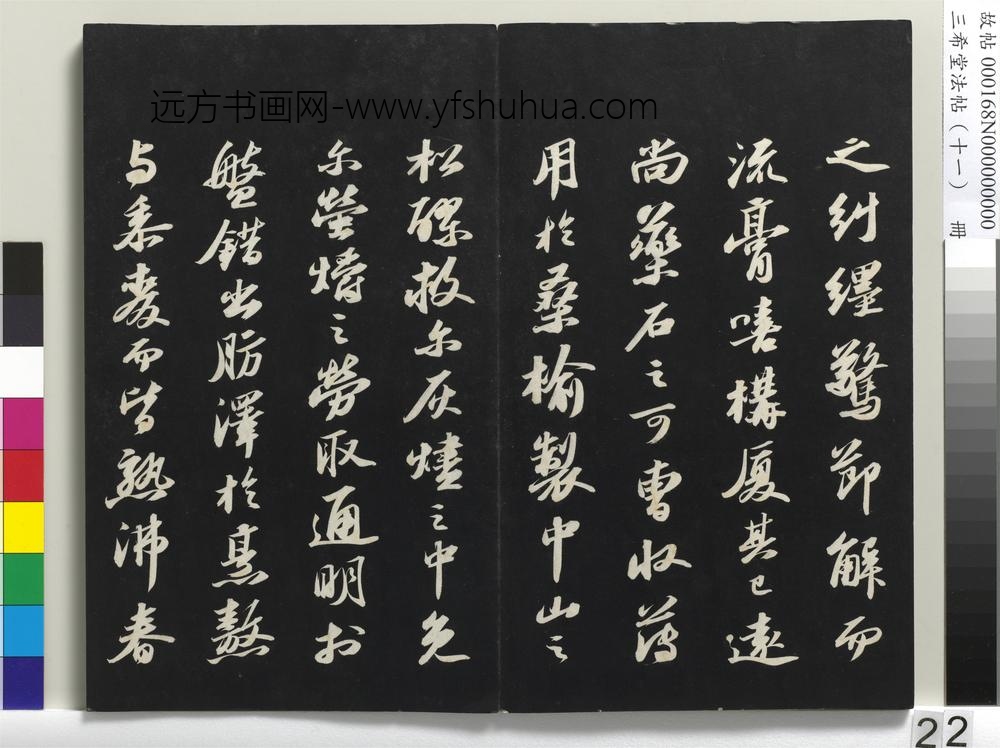 远方书画网-www.yfshuhua.com
之糾纆驚節解而
流膏嘻構厦其已遠
尚藥石之可曹收薄
用於桑榆製中山之
松醪救尔灰燼之中免
尔螢爝之勞取通明於
盤錯出肪澤於烹熬
与黍麥而皆熟沸春
故帖 000168N000000000
三希堂法帖（十一） 册
22